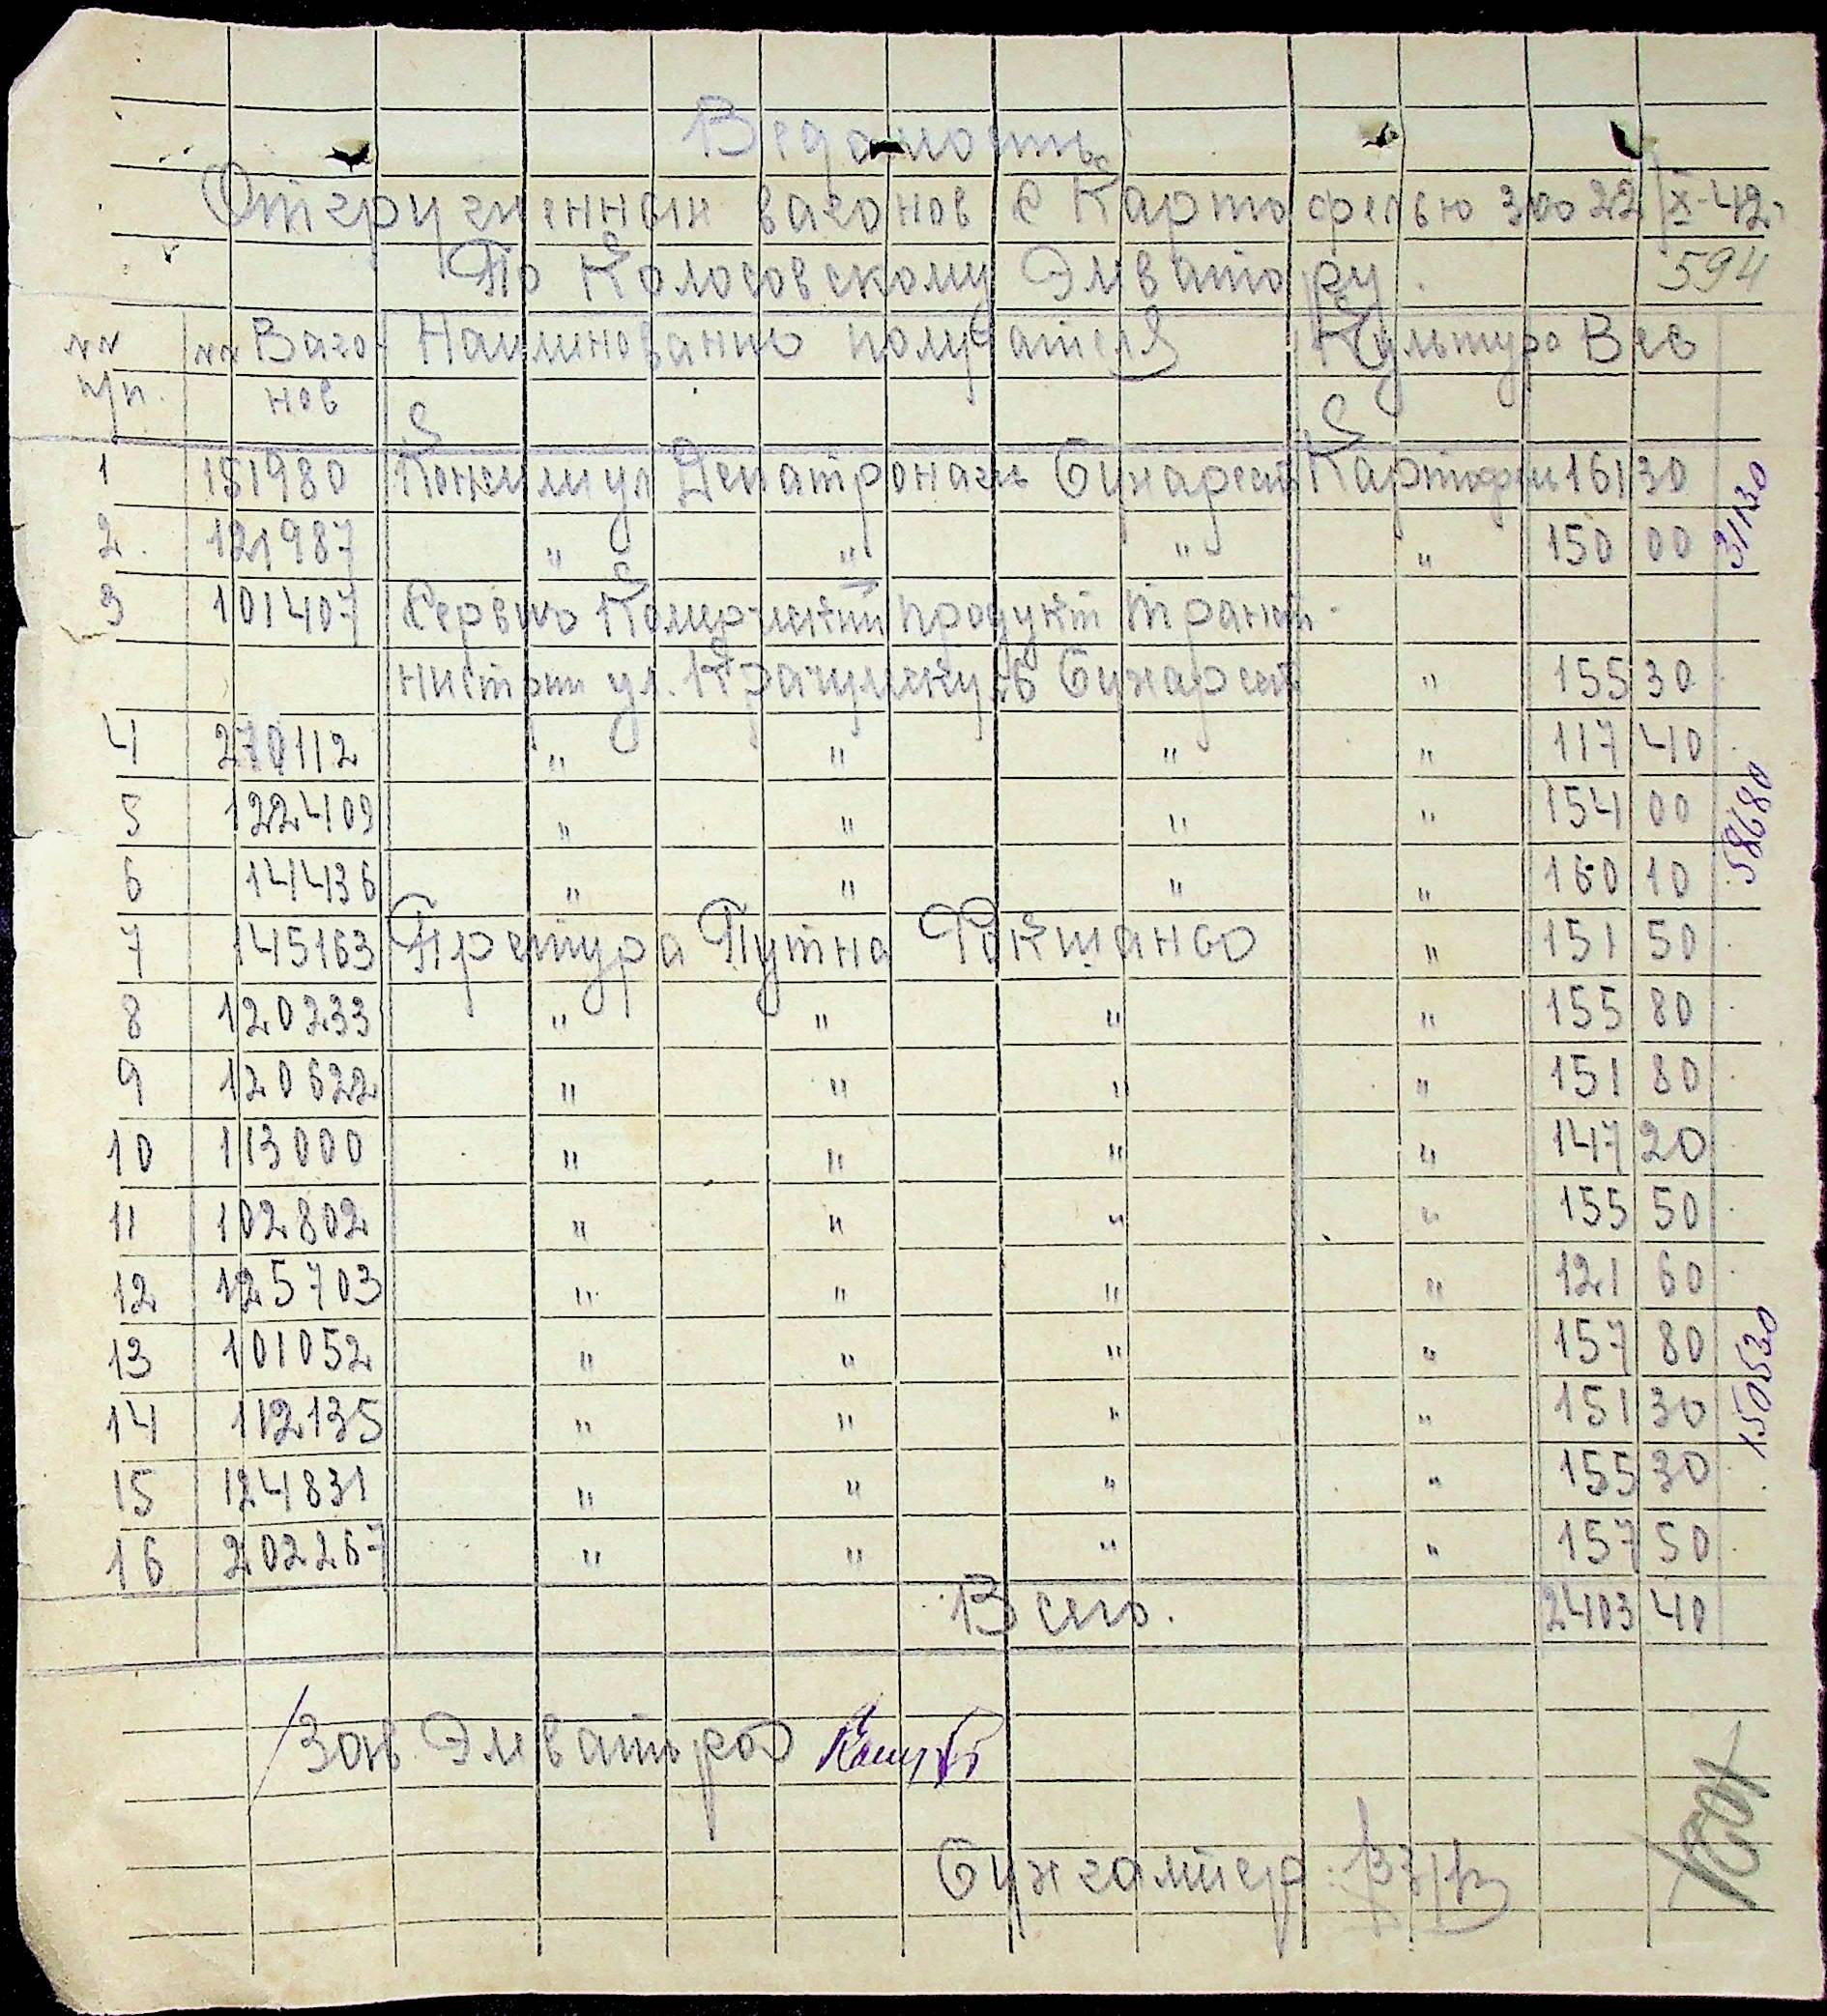 Ведомость
Отгруженных вагонов с Картофелью за 22/X-42г
По Колосовскому Элеватору.
594
№№ №№ Ваго- Наименование получателя Культура Вес
п/п. нов
1 151980 Консилиул Депатронаж Бухарест Картофель 161 30
2. 121987 " " " " 150 00
31130
3 101407 Сервис Комерческий продукт Транс-
нистрии ул. Крачулеску 16 Бухарест " 155 30
4 270112 " " " " 117 40
5 122409 " " " " 154 00
6 14436 " " " " 160 10
58680
7 145163 Претура Путна Фокшаны " 151 50
8 120233 " " " " 155 80
9 120622 " " " " 151 80
10 113000 " " " " 147 20
11 102802 " " " " 155 50
12 125703 " " " " 121 60
13 101052 " " " " 157 80
14 112135 " " " " 151 30
150530
15 124831 " " " " 155 30
16 202267 " " " " 157 50
Всего. 2403 40
Зав. Элеватора
Бухгалтер: